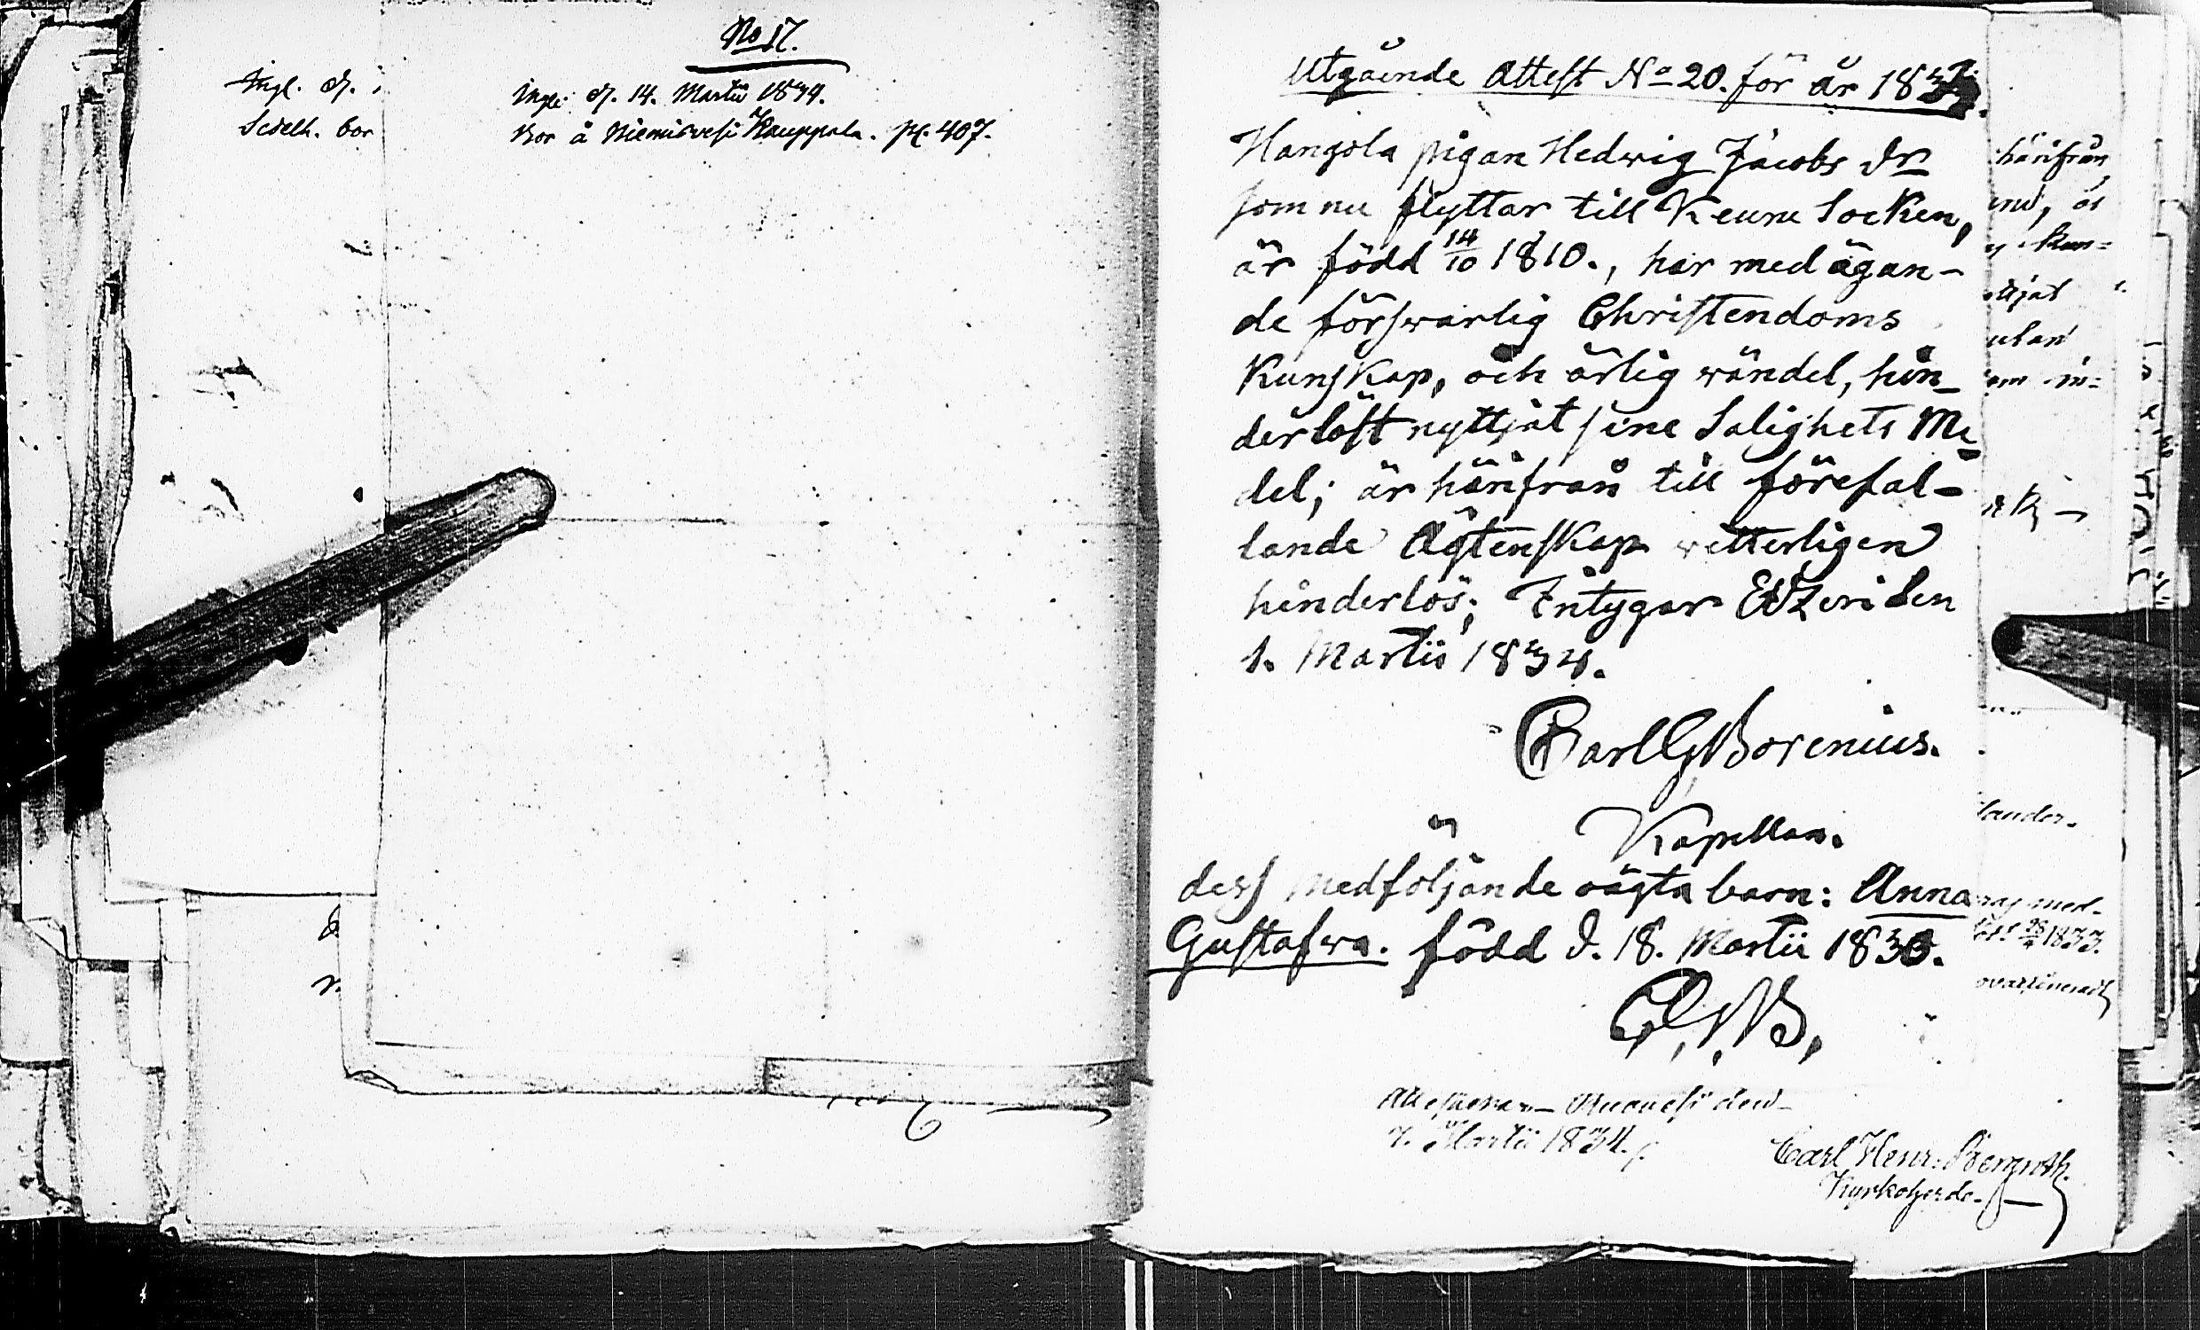 No 17.
Ingl. d. 14. Martii 1834.
Bor å Niemisvesi Kauppala. p. 407.
Ingl. d.
Sedelh. bor
Utgående Attest No 20. för år 1834.
Hangola pigan Hedwig Jacobs dr
som nu flyttar till Keuru Socken,
är född 14/10 1810., har med ägan-
de förswarlig Christendoms
Kunskap, och ärlig wandel, hin-
derlöst nyttjat sine Salighets Me-
del; är härifrån till förefal-
lande Ägtenskap vetterligen
hinderlös; Intygar Etzeri den
1. Martii 1834.
Carl G Borenius.
Kapellan.
dess medföljande oägta barn: Anna
Gustafwa. född d. 18. Martii 1833.
C. G. B.
Ruovesi den
7. Martii 1834.
Carl Henr: Bergroth.
Kyrkoherde.
härifrån
lander.
med-
1833.